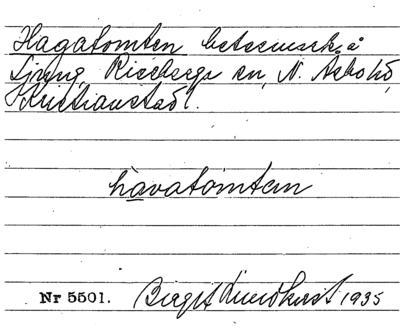 Hagatomten betesmark å
Ljung, Riseberga sn, N. Åsbo hd,
Kristianstad l.
havatomtem
Nr 5501. Birgit Lundkvist 1935